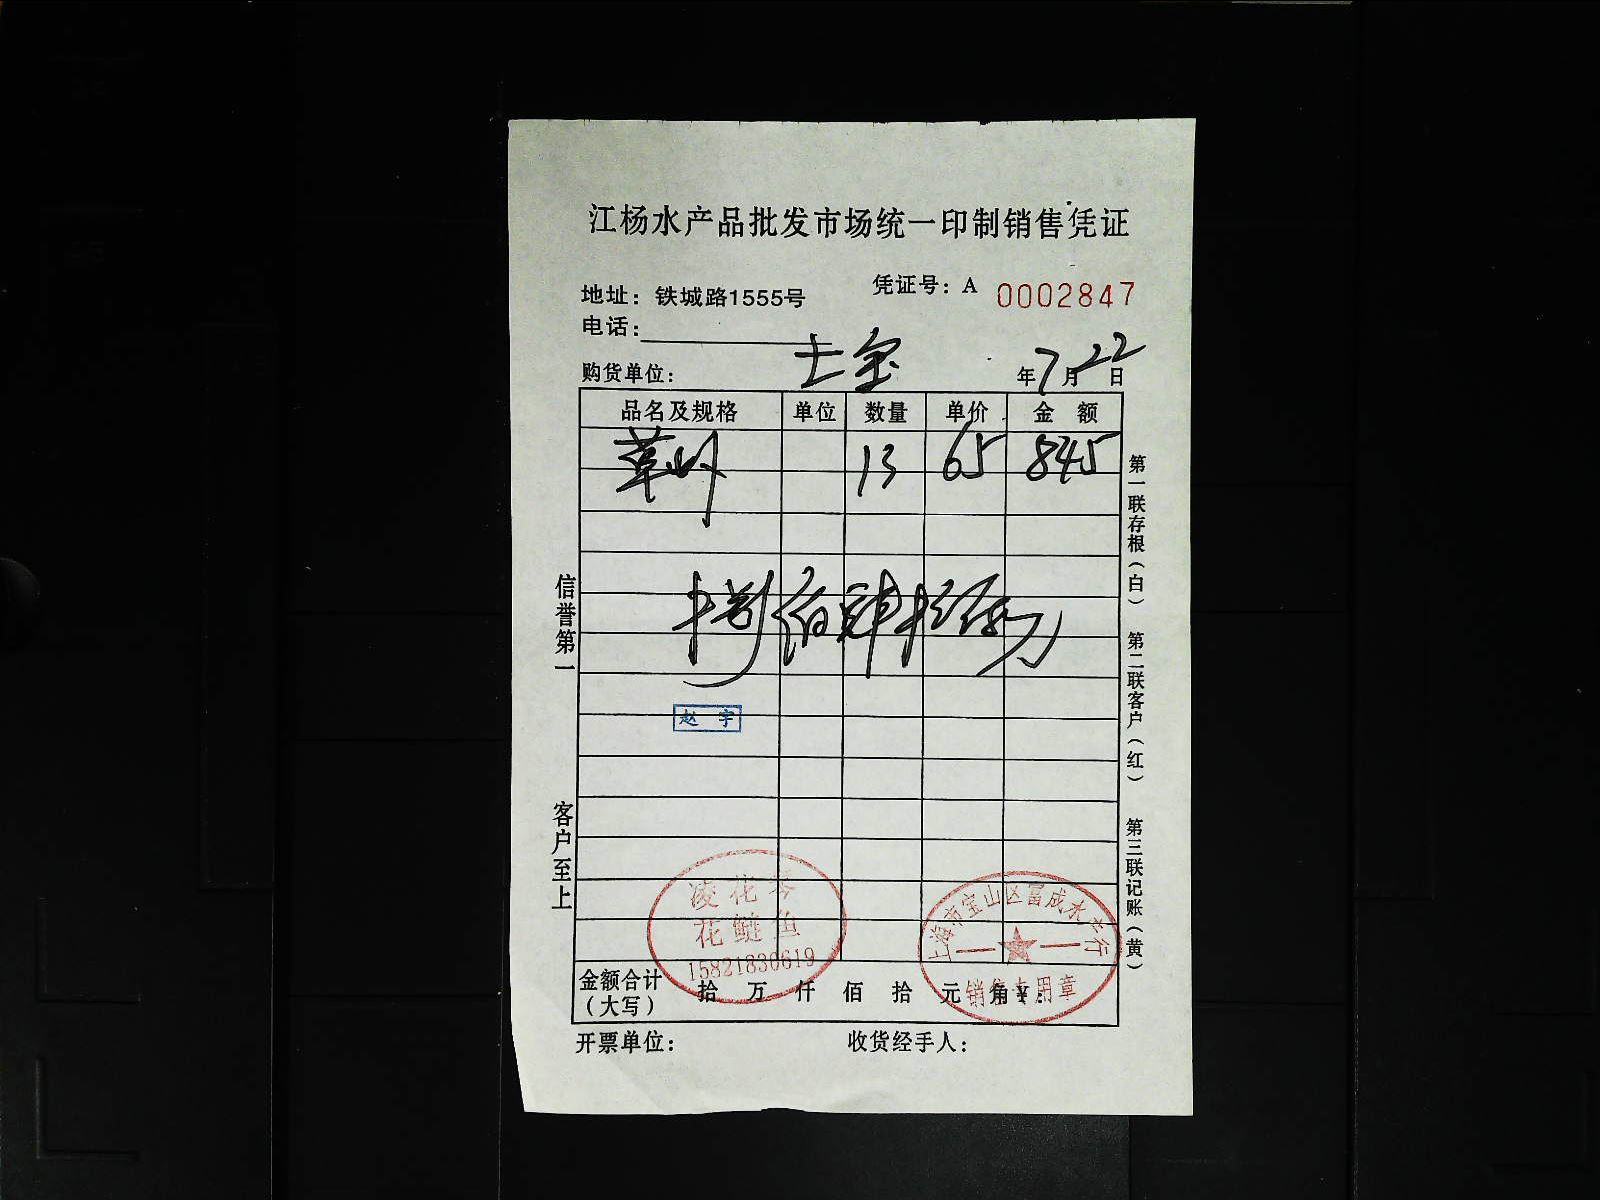 江杨水产品批发市场统一印制销售凭证
凭证号：A 0002847
地址：铁城路1555号
电话：
购货单位： 年7月22日
品名及规格 单位 数量 单价 金额
草 13 65 845
捌佰肆拾伍
赵宇
信誉第一
客户至上
第一联存根（白）
第二联客户（红）
第三联记账（黄）
凌花琴
花鲢鱼
15821830619
上海市宝山区富成水产行
销售专用章
金额合计（大写） 拾 万 仟 佰 拾 元 角 ¥：
开票单位： 收货经手人：